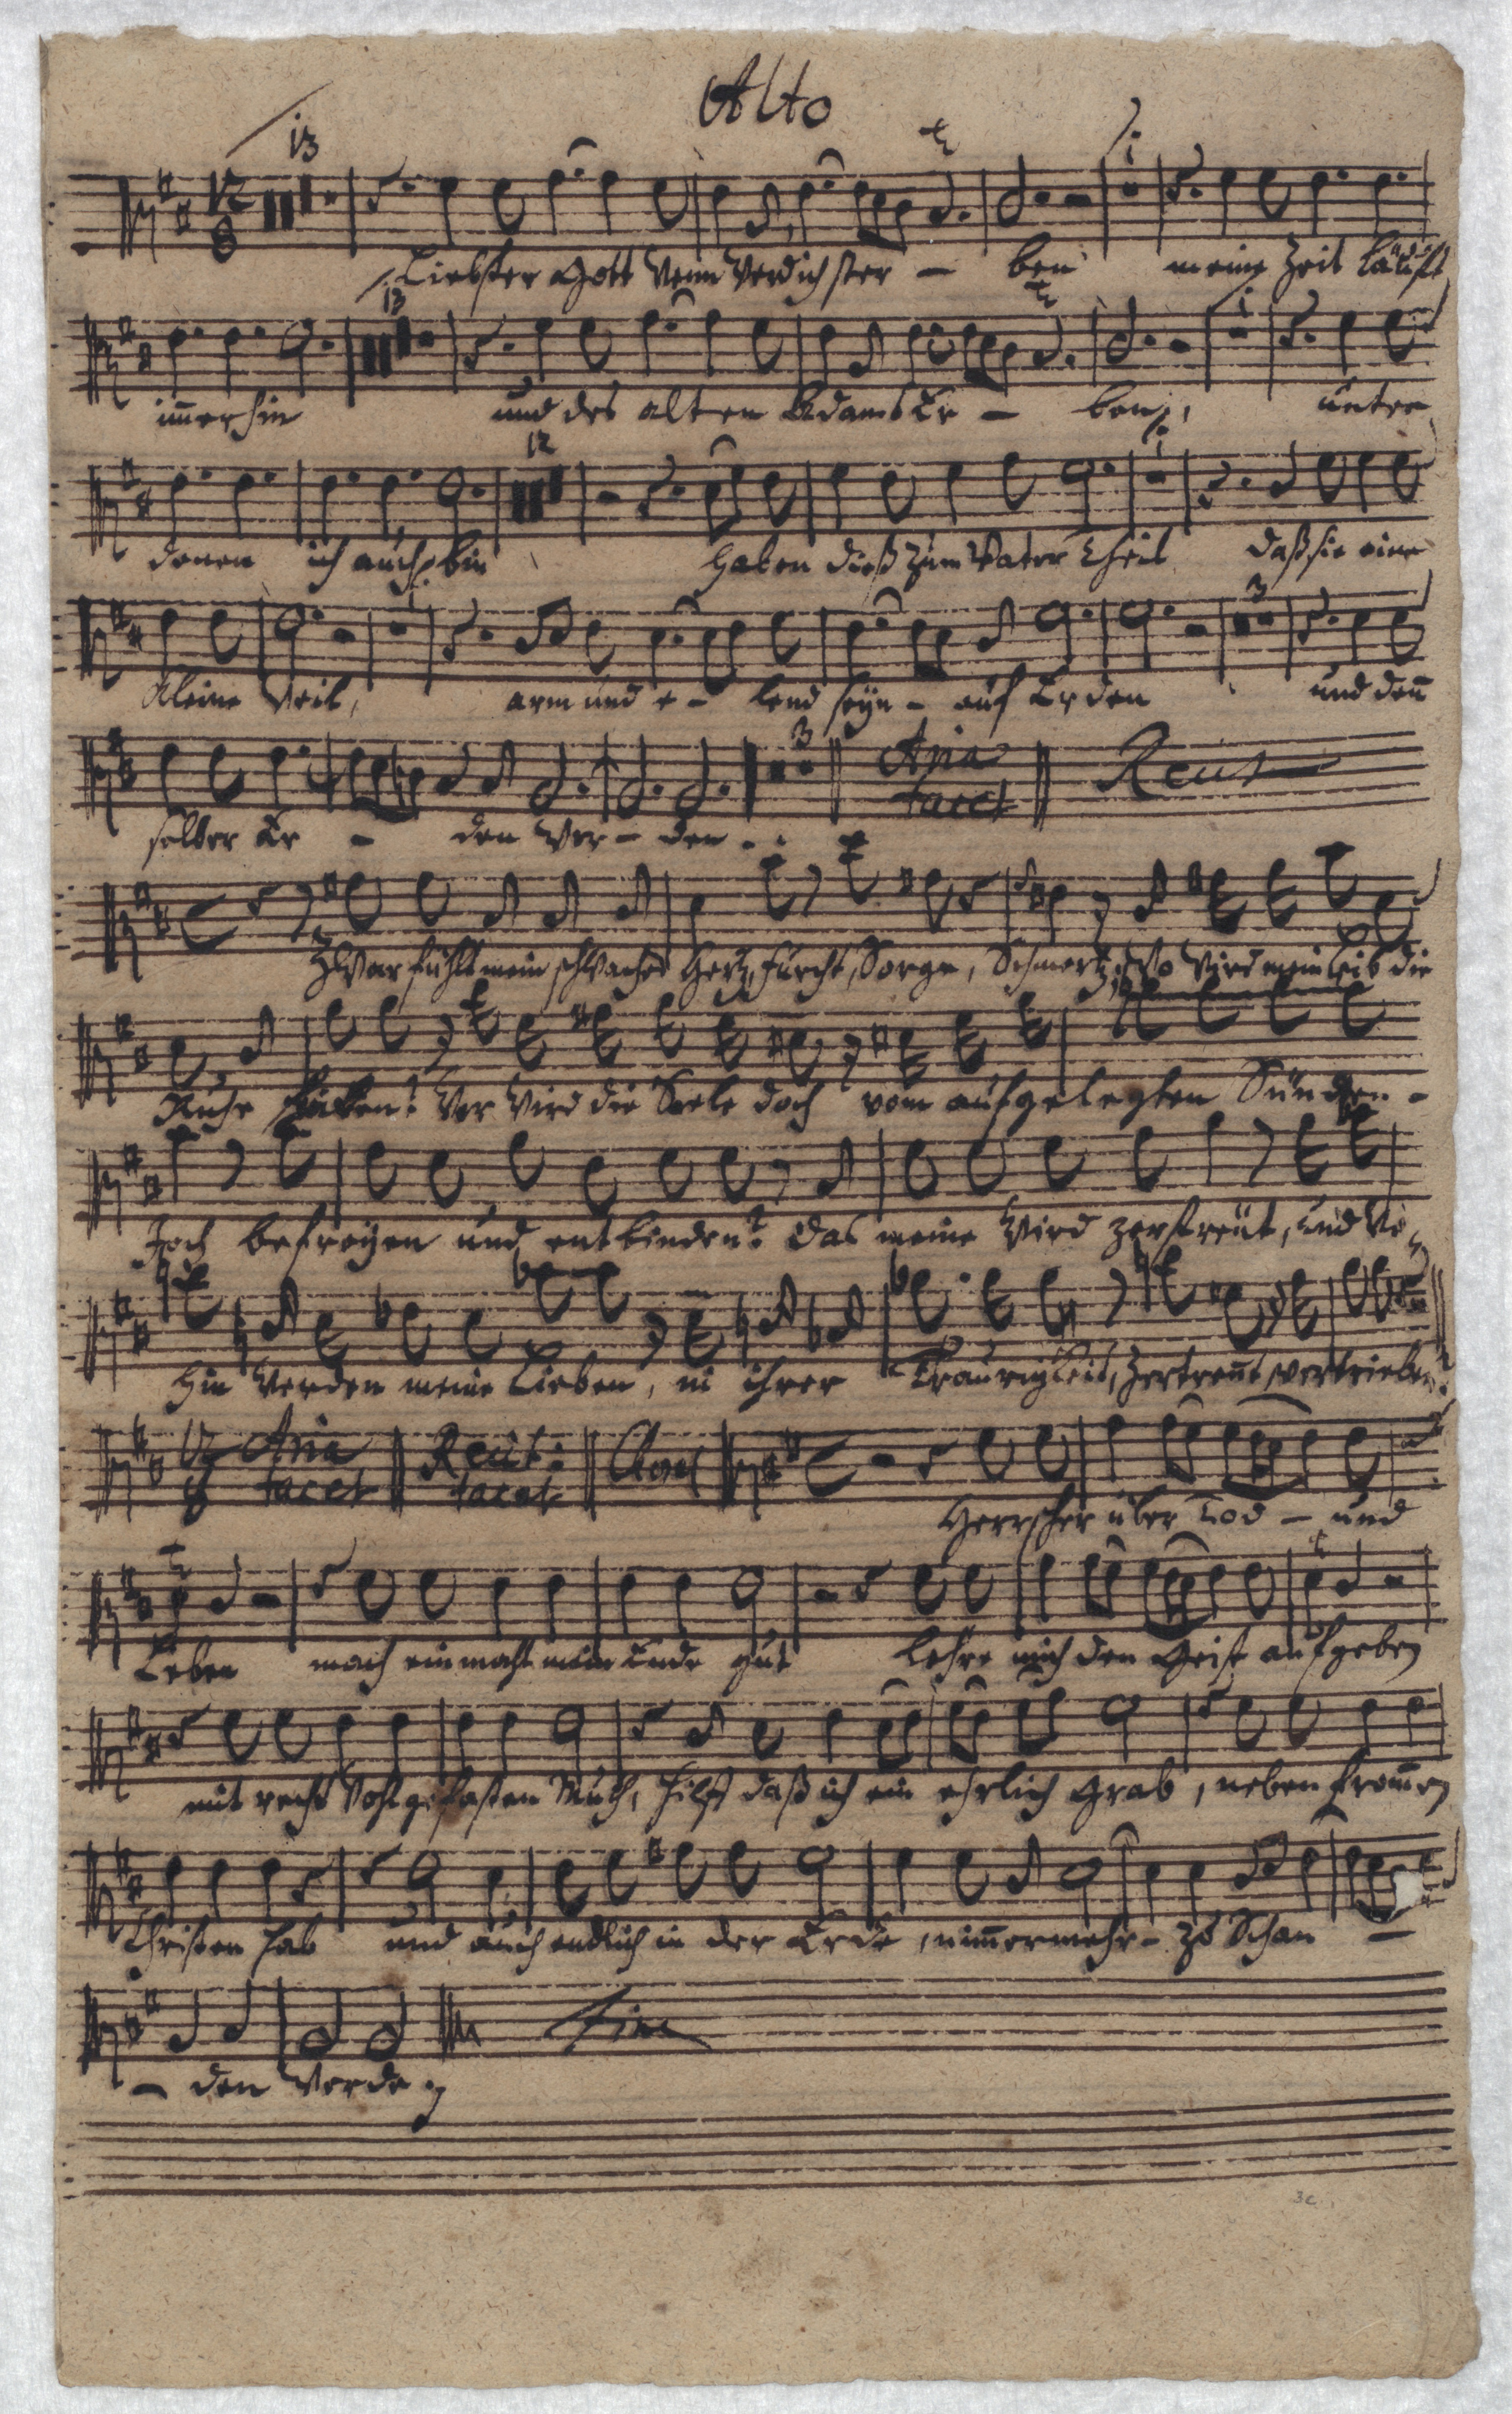 Alto
13
1
Liebster Gott wenn werd ich ster – ben meine Zeit läufft
13
1
im̅er hin und des alten Adams Er – ben, unter
12
1
denen ich auch bin haben dieß zum Vater theil daß sie eine
1
3
kleine weil, arm und e – lend seyn – auf Erden und den̅
3
Aria Recit
tacet
selber Er – den wer – den.
Zwar fühlt mein schwaches Hertz, Furcht, Sorge, Schmertz, wo wird mein Leib die
Ruhe finden? Wer wird die Seele doch vom aufgelegten Sünden –
Joch befreyen und entbinden? Das meine wird zerstreut, und wo
hin werden meine Lieben, in ihrer Traurigkeit, zertren̅t, vertrieben?
12 Aria Recit: Chor
8 tacet tacet
Herrscher über Tod – und
Leben mach einmahl mein Ende gut lehre mich den Geist aufgeben
mit recht wohlgefasten Muth, hilff daß ich ein ehrlich Grab, neben from̅en
Christen hab und auch endlich in der Erde, nim̅ermehr – zu Schan –
Fine
– den werde
3c